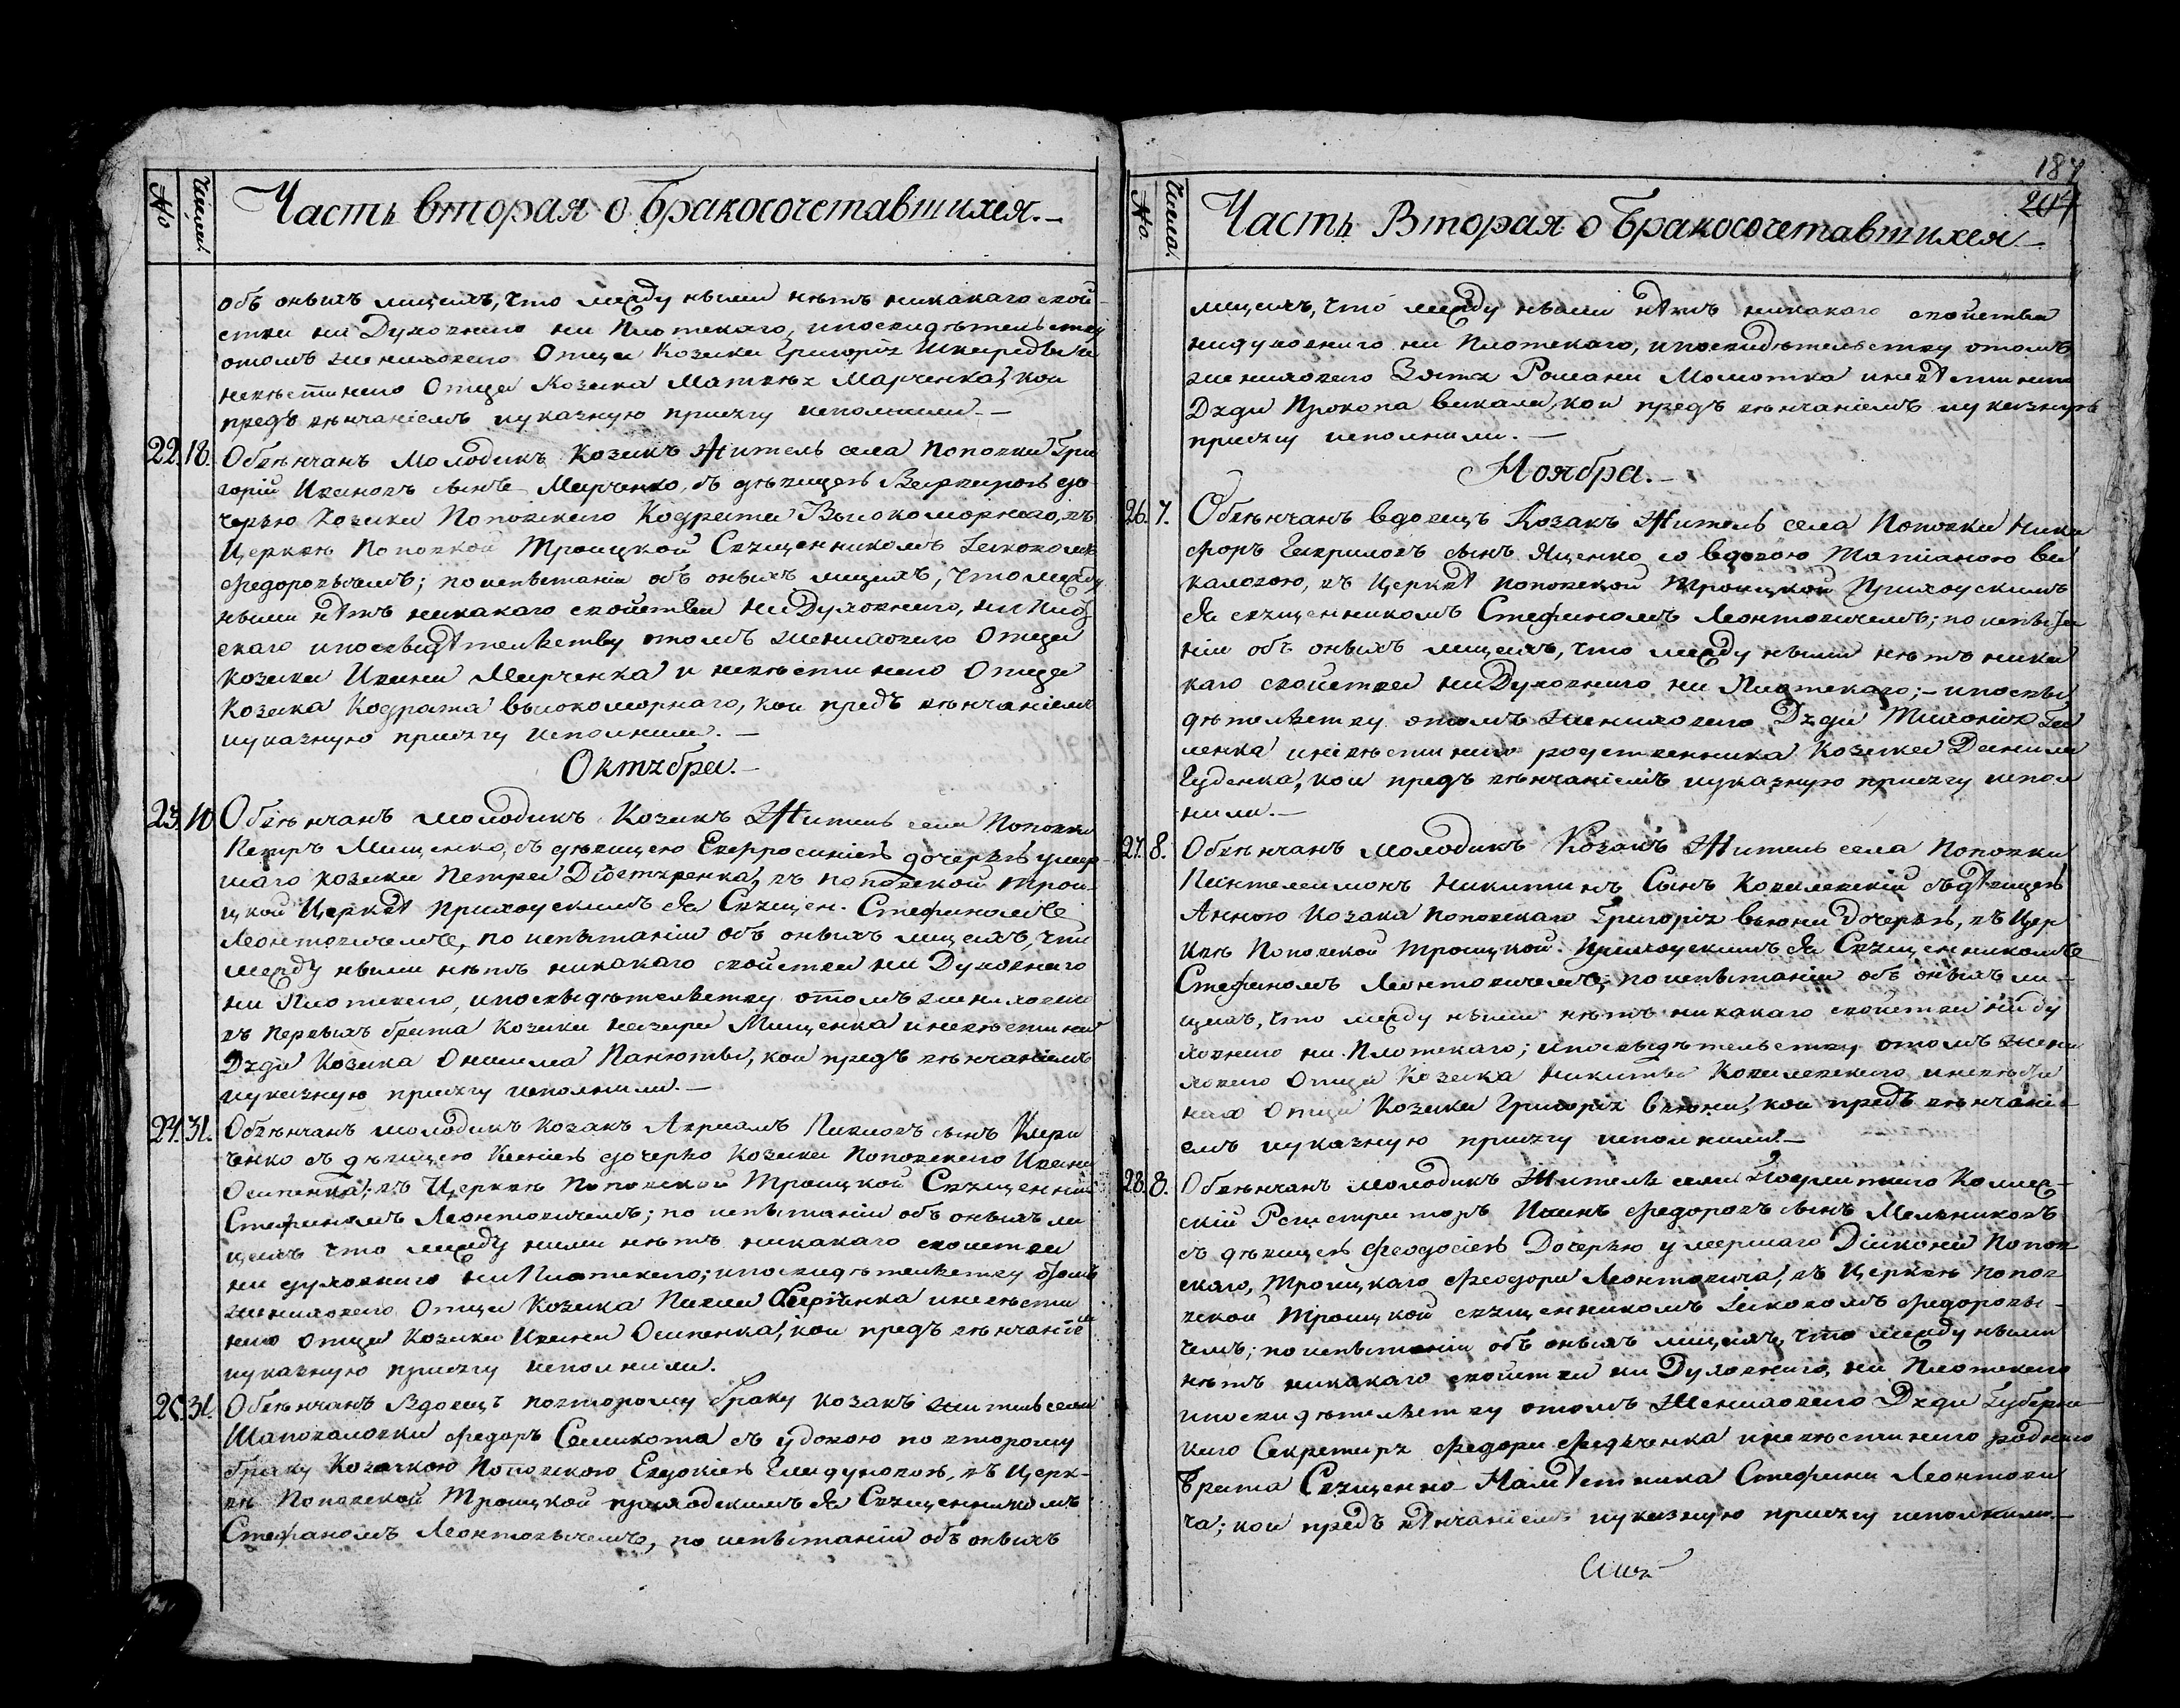 No
Числа
Часть вторая о бракосочетавшихся.–
объ оныхъ лицахъ, что между ными нѣтъ никакаго свой-
ства ни Духовнаго ни Плотскаго, ипосвидѣтельству
отомъ женихового Отца Козака Григорія
невѣстиного Отца Козака Матвѣя Марченка, кои
предъ вѣнчаніемъ иуказную присягу исполнили.–
22. 18. Обвѣнчанъ Молодикъ Козакъ Житель села Поповки Гри
горій Ивановъ сынъ Марченко, съ дѣвицею Варварою до-
черью Козака Поповского Кодрата Высокоморного, въ
Церквѣ Поповкой Троицкой Священникомъ Іаковомъ
Федоровичемъ; поиспытаніи объ оныхъ лицахъ, что между
ными нѣтъ никакаго свойства ни Духовнаго, ни Плот
скаго ипосвидѣтелъству отомъ женихового Отца
Козака Ивана Марченка и невѣстиного Отца
Козака Кодрата высокоморнаго, кои предъ вѣнчаніемъ
иуказную присягу исполнили.–
Октября.–
23. 10. Обвѣнчанъ молодикъ Козакъ Житель села Поповки
Петръ Мищенко, съ дѣвицею Евфросиніею дочерью умер
шаго козака Петра Дібетяренка, въ поповской Трои-
цкой Церквѣ Приходскимъ ея Священ. Стефаномъ
Леонтовичемъ, по испытаніи объ оныхъ лицахъ, что
между ными нѣтъ никакаго свойства ни Духовнаго
ни Плотского, ипосвидѣтелъству отомъ женихового
въ первыхъ брата козака Назара Мищенка иневѣстиной
Дяди Козака Онисима Панюты, кои предъ вѣнчаніемъ
иуказную присягу исполнили.–
24. 31. Обвѣнчанъ молодикъ козакъ Авраамъ Павловъ сынъ Кири
ченко съ дѣвицею Ксеніею дочерью Козака Поповского Ивана
Осипенка; въ Церквѣ Поповской Троицкой Священни
Стефаномъ Леонтовичемъ; по испытаніи объ оныхъ ли
цахъ что между ними нѣтъ никакаго свойства
ни духовнаго ни Плотского; ипосвидѣтелъству отомъ
женихового Отца Козака Павла Киріченка иневѣсти
ного отца Козака Ивана Осипенка, кои предъ вѣнчаніем
иуказную присягу исполнили.
25. 31. Обвѣнчанъ Вдовецъ повторому браку козакъ житель села
Шаповаловки Федоръ Семикота съ удовою по второму
браку Козачкою Поповскою Евдокіею въ Церк-
вѣ Поповской Троицкой приходскимъ ея Священникомъ
Стефаномъ Леонтовычемъ, по испытаніи объ оныхъ
187
204
No.
Числа.
Часть Вторая о бракосочетавшихся–
лицахъ, что между ными нѣтъ никакаго свойства
нидуховнаго ни Плотскаго, ипосвидѣтелъству отомъ
женихового Зятя Романа Момотка иневѣстиного
Дяди Прокопа викала, кои предъ вѣнчаніемъ иуказную
присягу исполнили.–
Ноября.–
26. 7. Обвѣнчанъ вдовецъ Козакъ Житель села Поповки Ники
форъ Гавриловъ сынъ Яценко со вдовою Татіаною ви
каловою, въ Церквѣ поповской Троицкой Приходскимъ
ея священникомъ Стефаномъ Леонтовичемъ; по испыта
ніи объ оныхъ лицахъ, что между ными нѣтъ ника
каго свойства ни Духовнаго ни Плотскаго;– ипосвы
дѣтелъству отомъ женихового Дяди
ленка иневѣстиного родственника Козака Данила
Губенка, кои предъ вѣнчаніемъ иуказную присягу испол
нили.–
27. 8. Обвѣнчанъ молодикъ Козакъ Житель села Поповки
Пантелеимонъ Никитинъ Сынъ Ковалевскій съ дѣвицею
Анною Козака поповскаго Григорія вьюна дочерью, въ Цер
квѣ Поповской Троицкой. Приходскимъ ея Священникомъ
Стефаномъ Леонтовичемъ; по испытаніи объ оныхъ ли-
цахъ, что между ными нѣтъ никакаго свойства ниду
ховного ни Плотскаго; ипосвыдѣтельству отомъ жени
хового Отца Козака Никиты Ковалевского иневѣсти
ного Отца Козака Григорія вьюна, кои предъ вѣнчані-
емъ иуказную присягу исполнили.–
28. 8. Обвѣнчанъ молодикъ Житель села Коллеж-
скій Регистраторъ Иванъ Федоровъ сынъ Мельниковъ
съ дѣвицею Феодосіею Дочерью умершаго Діакона Попов
скаго, Троицкаго Феодора Леонтовича, въ Церквѣ Попов
вской Троицкой священникомъ Іаковомъ Федоровы-
чемъ; поиспытаніи объ оныхъ лицахъ, что между ными
нѣтъ никакаго свойства ни Духовного, ни Плотского
ипосвидѣтелъству отомъ Женихового Дяди Губерн-
кого Секретаря Федора Федченка иневѣстиного родного
Брата Священно-Намѣстника Стефана Леонтови
ча; кои предъ вѣнчаніемъ иуказную присягу исполнили.–